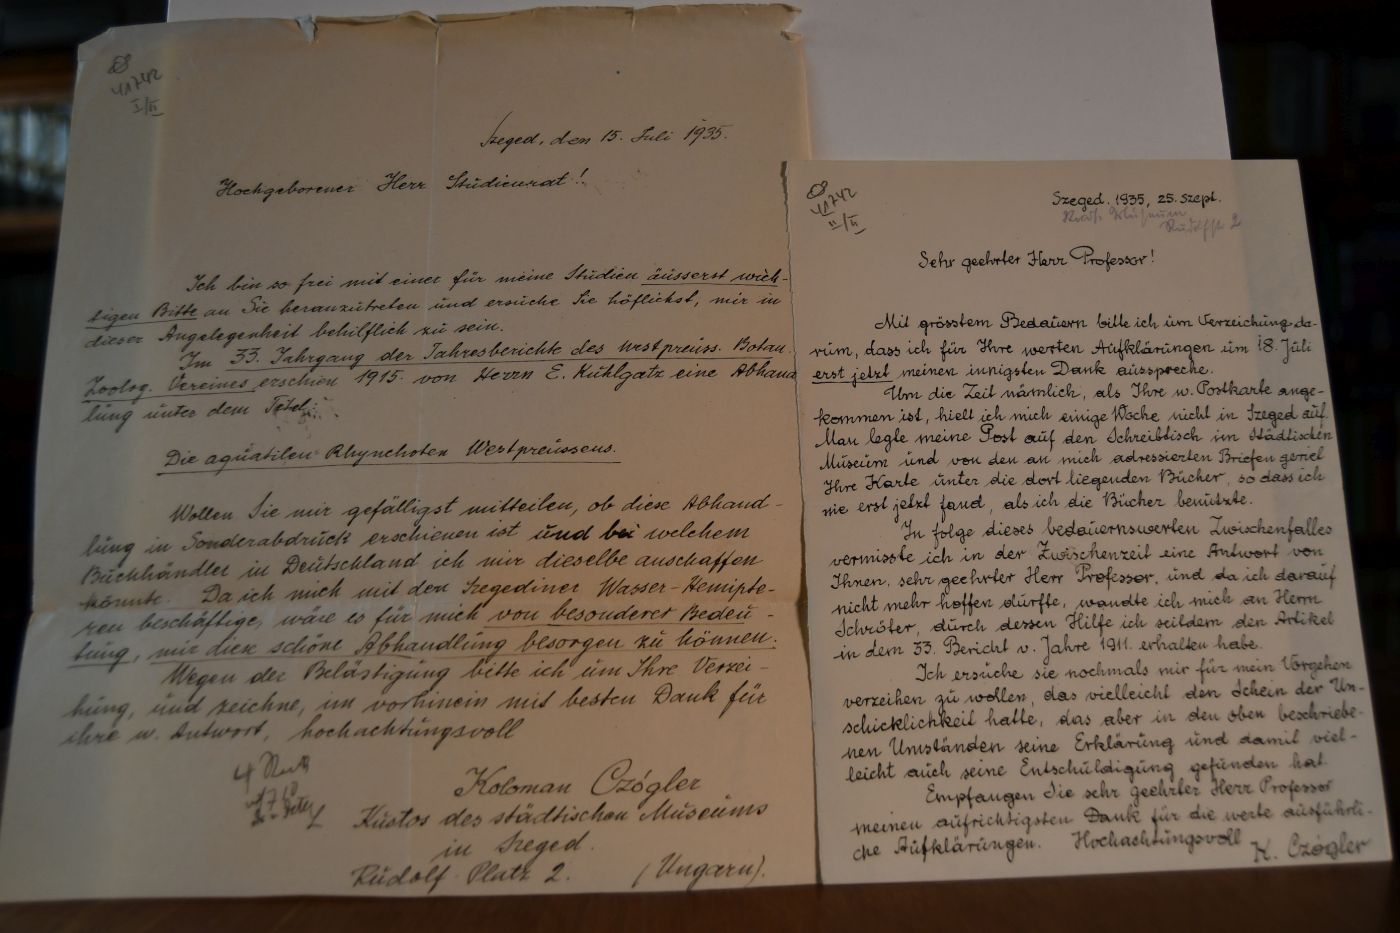 41742
I/II
Szeged, den 15. Juli 1935.
Hochgeborener Herr Studienrat!
Ich bin so frei mit einer für meine Studien äusserst wich-
tigen Bitte an Sie heranzutreten und ersuche Sie höflichst, mir in
dieser Angelegenheit behilflich zu sein.
Im 33. Jahrgang der Jahresberichte des westpreuss. Botan.
Zoolog. Vereines erschien 1915. von Herrn E. Kühlgatz eine Abhand
lung unter dem Titel:
Die aquatilen Rhynchoten Westpreussens.
Wollen Sie mir gefälligst mitteilen, ob diese Abhand-
lung in Sonderabdruck erschienen ist und bei welchem
Buchhändler in Deutschland ich mir dieselbe anschaffen
könnte. Da ich mich mit den Szegediner Wasser-Hemipte-
ren beschäftige, wäre es für mich von besonderer Bedeu-
tung, mir diese schöne Abhandlung besorgen zu können.
Wegen der Belästigung bitte ich um Ihre Verzei-
hung, und zeichne, im vorhinein mit besten Dank für
ihre w. Antwort, hochachtungsvoll
Koloman Czógler
Kustos des städtischen Museums
in Szeged.
Rudolf-Platz 2. (Ungarn).
41742
II/II
Szeged. 1935, 25. Szept.
Sehr geehrter Herr Professor!
Mit grösstem Bedauern bitte ich um Verzeichung da-
rum, dass ich für Ihre werten Aufklärungen um 18. Juli
erst jetzt meinen innigsten Dank ausspreche.
Um die Zeit nämlich, als Ihre w. Postkarte ange-
kommen ist, hielt ich mich einige Woche nicht in Szeged auf.
Man legte meine Post auf den Schreibtisch im Städtischen
Museum und von den an mich adressierten Briefen geriel
Ihre Karte unter die dort liegenden Bücher, so dass ich
sie erst jetzt fand, als ich die Bücher benützte.
In folge dieses bedauernswerten Zwischenfalles
vermisste ich in der Zwischenzeit eine Antwort von
Ihnen, sehr geehrter Herr Professor, und da ich darauf
nicht mehr hoffen durfte, wandte ich mich an Herrn
Schröter, durch dessen Hilfe ich seitdem den Artikel
in dem 33. Bericht v. Jahre 1911. erhalten habe.
Ich ersuche sie nochmals mir für mein Vorgehen
verzeihen zu wollen, das vielleicht den Schein der Un-
schicklichkeit hatte, das aber in den oben beschriebe-
nen Umständen seine Erklärung und damit viel-
leicht auch seine Entschuldigung gefunden hat.
Empfangen Sie sehr geehrter Herr Professor
meinen aufrichtigsten Dank für die werte ausführli-
che Aufklärungen. Hochachtungsvoll
K. Czógler